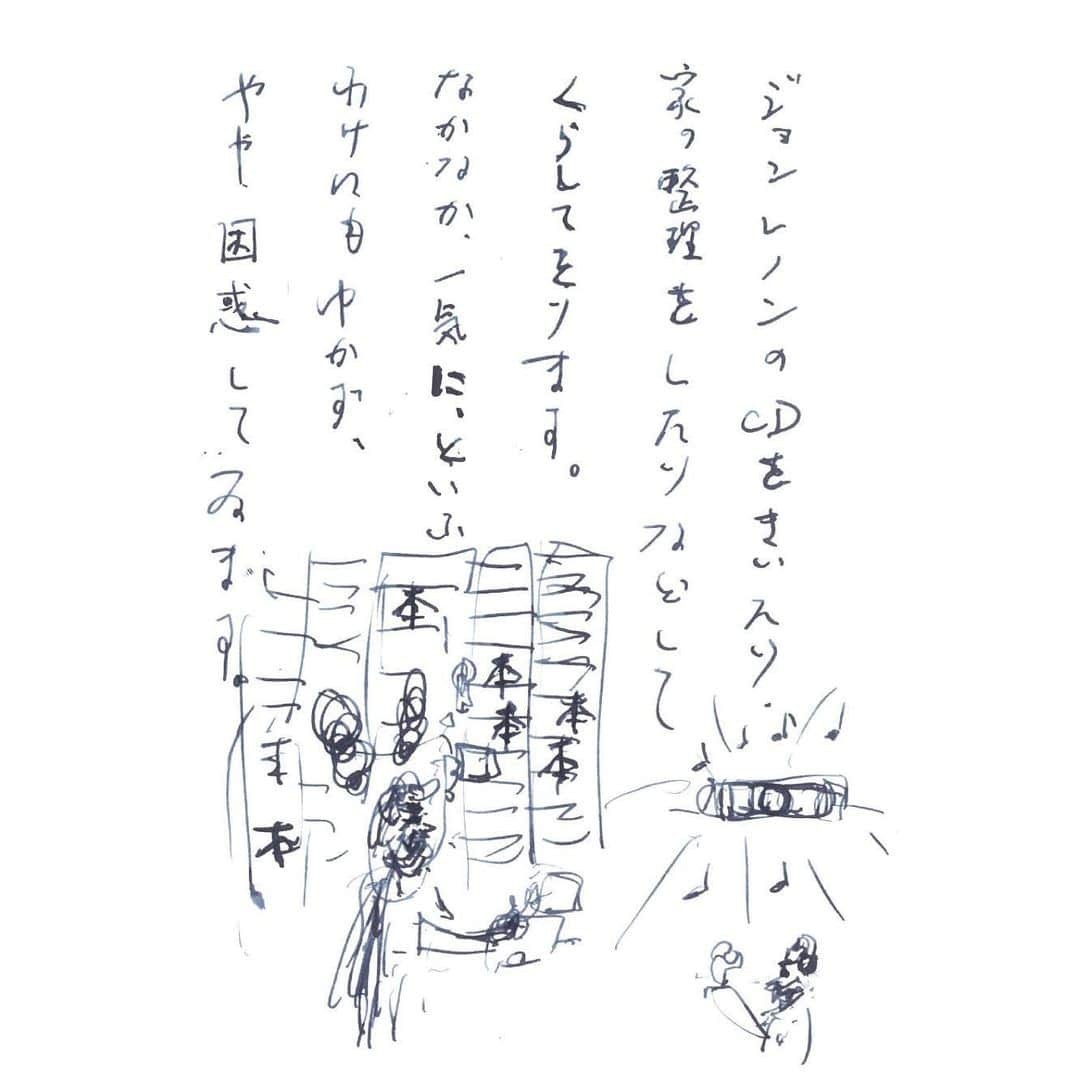 ジョンレノンのCDをきいたり
家の整理をしたりなどして
くらしてをります。
なかなか、一気に、といふ
わけにもゆかず、
やや困惑してゐます。
本
本
本
本
本
本
本